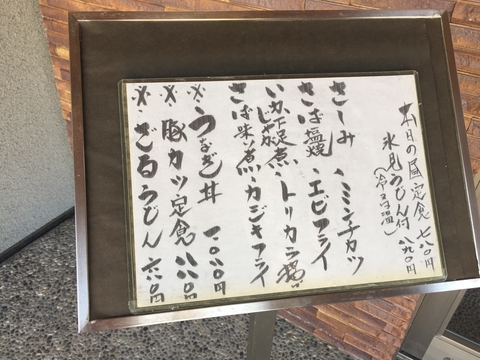 本日の昼定食 七八〇円
氷見うどん付 八九〇円
(冷・温)
さしみ・ミンチカツ
さば塩焼・エビフライ
いか下足煮・トリカラ揚
さば味噌煮・カジキフライ
※うなぎ丼 一〇八〇円
※豚カツ定食 八八〇円
※ざるうどん 六八〇円